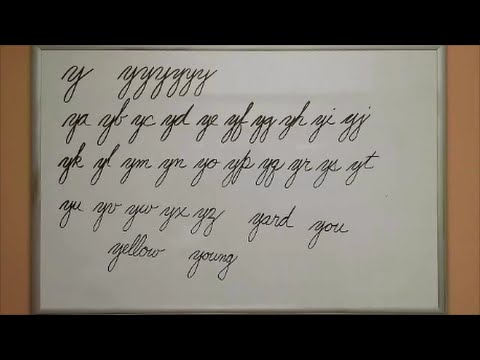 y yyyyyy
ya yb yc yd ye yf yg yh yi yj
yk yl ym yn yo yp yq yr ys yt
yu yv yw yx yz yard you
yellow young